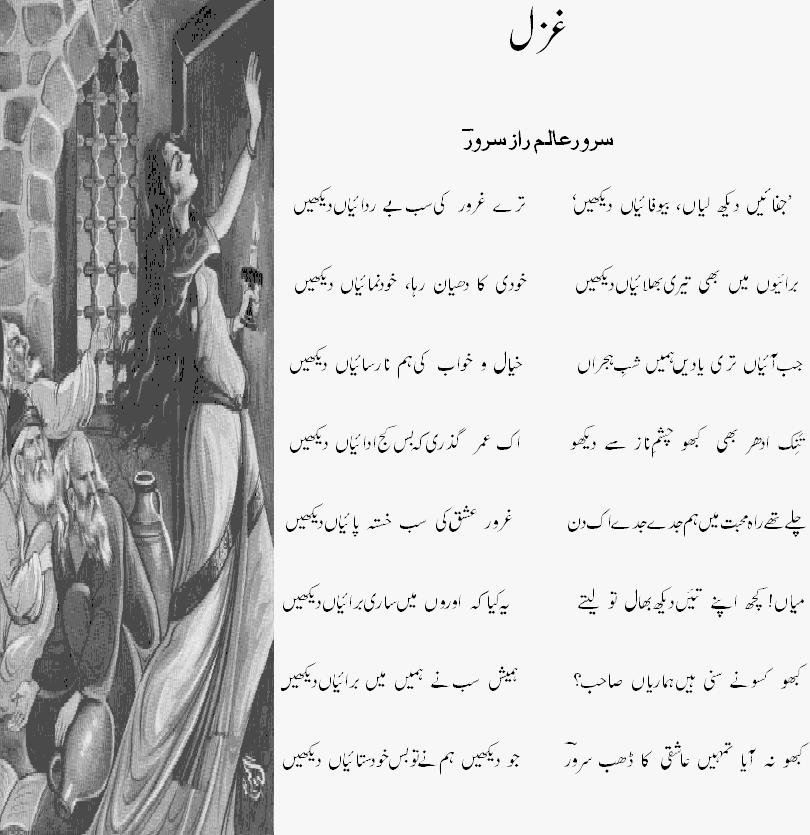 غزل
سرور عالم راز سرورؔ
’جفائیں دیکھ لیاں، بیوفائیاں دیکھیں‘ ترے غرور کی سب بے ردائیاں دیکھیں
برائیوں میں بھی تیری بھلائیاں دیکھیں خودی کا دھیان رہا، خودنمائیاں دیکھیں
جب آئیاں تری یادیں ہمیں شبِ ہجراں خیال و خواب کی ہم نارسائیاں دیکھیں
تنک ادھر بھی کبھو چشمِ ناز سے دیکھو اک عمر گذری کہ بس کج ادائیاں دیکھیں
چلے تھے راہ محبت میں ہم جدے جدے اک دن غرور عشق کی سب خستہ پائیاں دیکھیں
میاں! کچھ اپنے تئیں دیکھ بھال تو لیتے یہ کیا کہ اوروں میں ساری برائیاں دیکھیں
کبھو کسو نے سنی ہیں ہماریاں صاحب؟ ہمیش سب نے ہمیں میں برائیاں دیکھیں
کبھو نہ آیا تمہیں عاشقی کا ڈھب سرورؔ جو دیکھیں ہم نے تو بس خودستائیاں دیکھیں